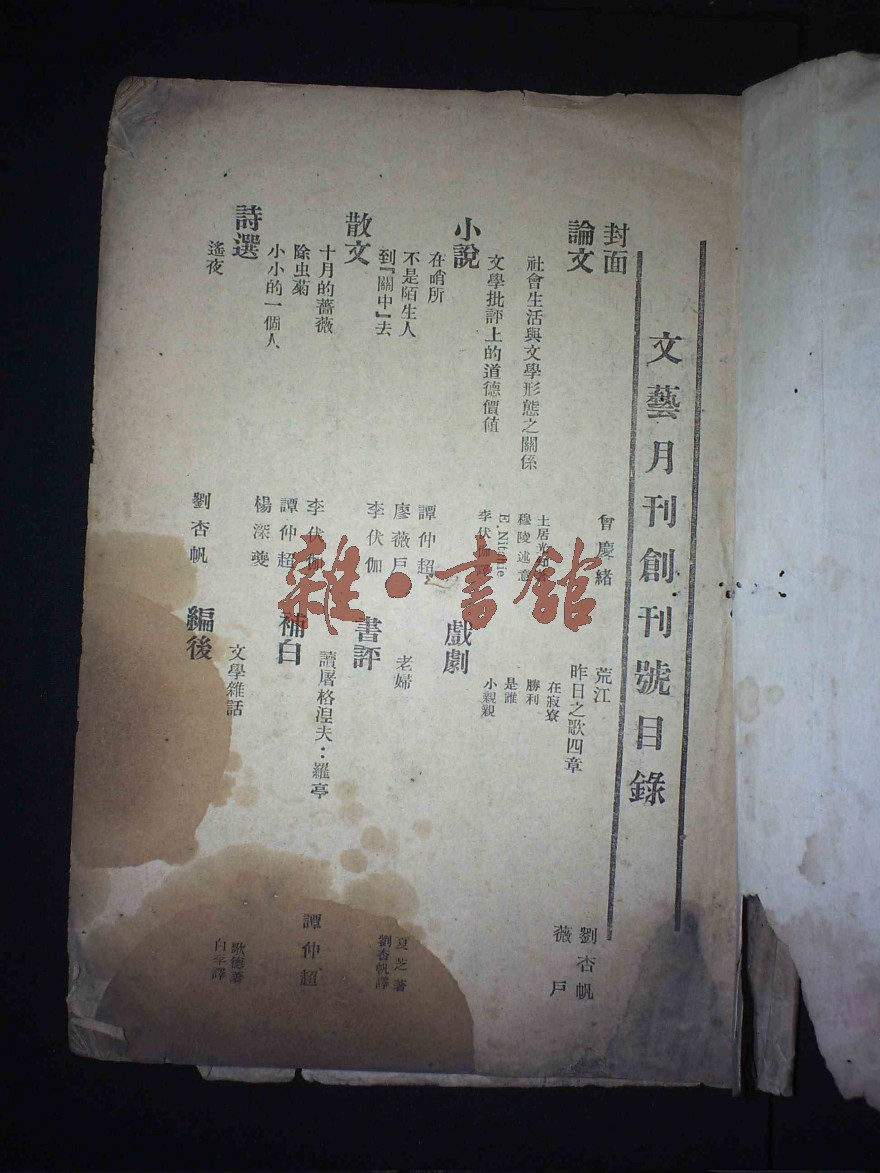 文藝月刊創刊號目錄
封面
曾慶緒
論文
社會生活與文學形態之關係
穆陵述意
文學批評上的道德價值
李伏伽譯
小說
在哨所
譚仲超
不是陌生人
廖薇戶
到『關中』去
李伏伽
散文
十月的薔薇
李伏伽
除虫菊
譚仲超
小小的一個人
楊深夔
詩選
遙夜
劉杏帆
荒江
劉杏帆
昨日之歌四章
薇戶
在寂寮
勝利
是誰
小親親
戲劇
老婦
夏芝著
劉杏帆譯
書評
讀屠格涅夫：羅亭
譚仲超
補白
文學雜話
歌德著
白芊譯
編後
雜·書館